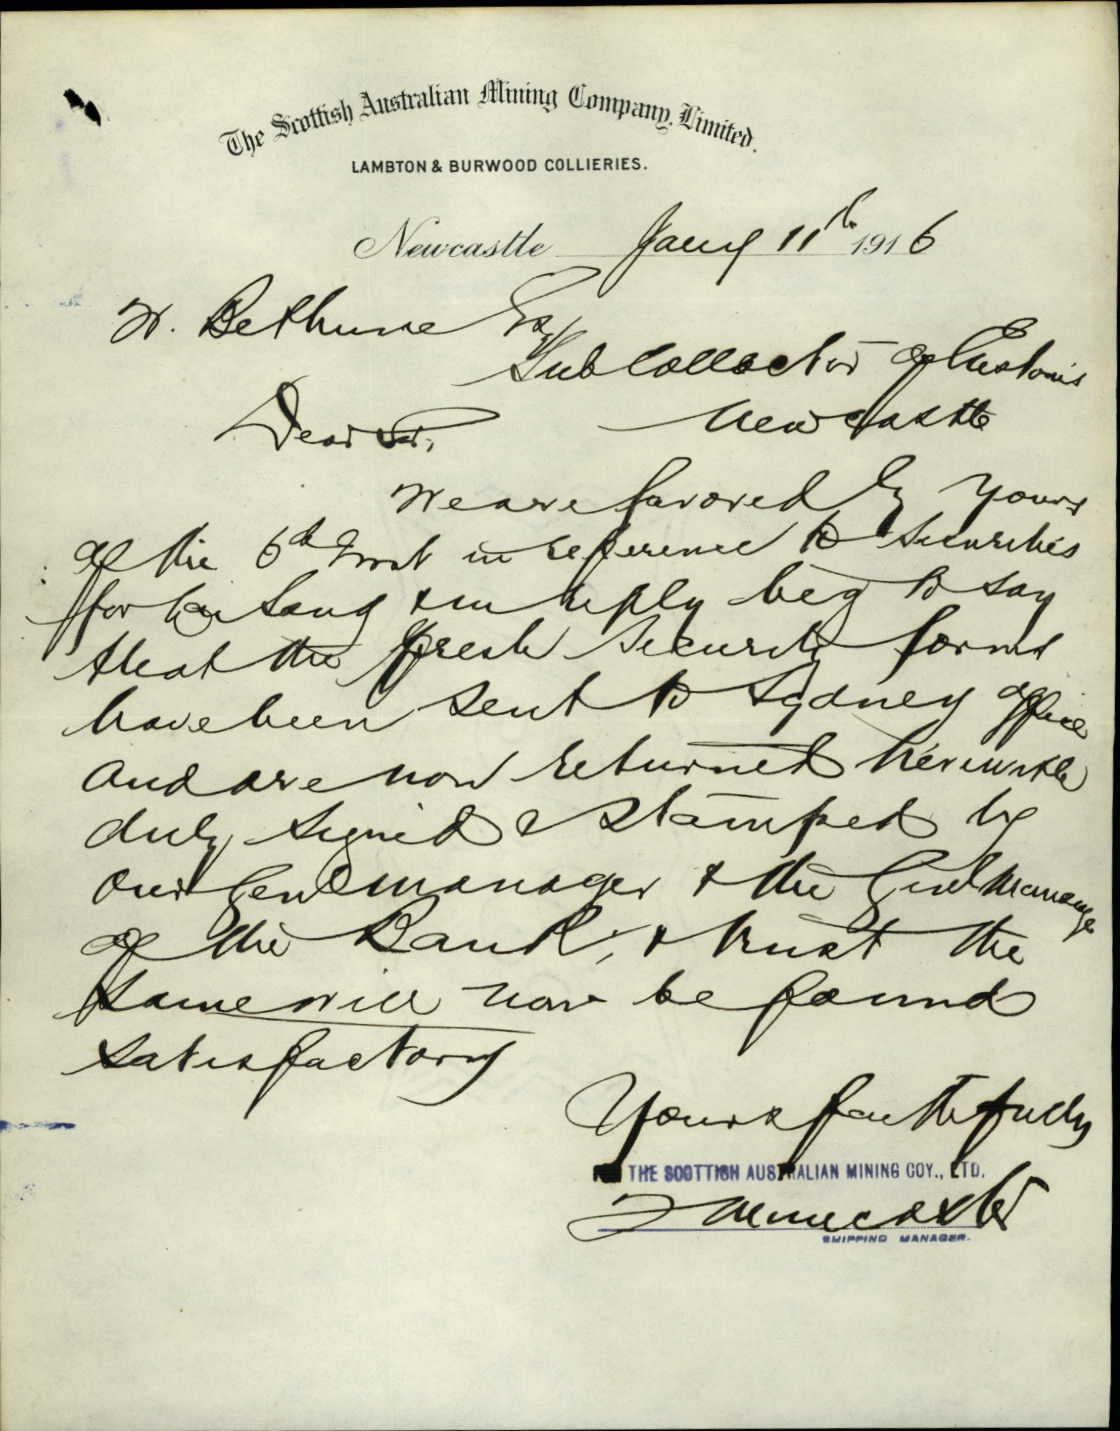 The Scottish Australian Mining Company, Limited.
LAMBTON & BURWOOD COLLIERIES.
Newcastle Jany 11th 1916
W. Bethune Esq
Sub Collector of Customs
Newcastle
Dear Sir,
We are favored by yours
of the 6th Inst in reference to securities
for & in reply beg to say
that the fresh security forms
have been sent to Sydney office
and are now returned herewith
duly signed & stamped by
our Genl manager & the Genl Manager
of the Bank, & trust the
same will now be found
satisfactory
Yours faithfully
FOR THE SCOTTISH AUSTRALIAN MINING COY., LTD.
SHIPPING MANAGER.